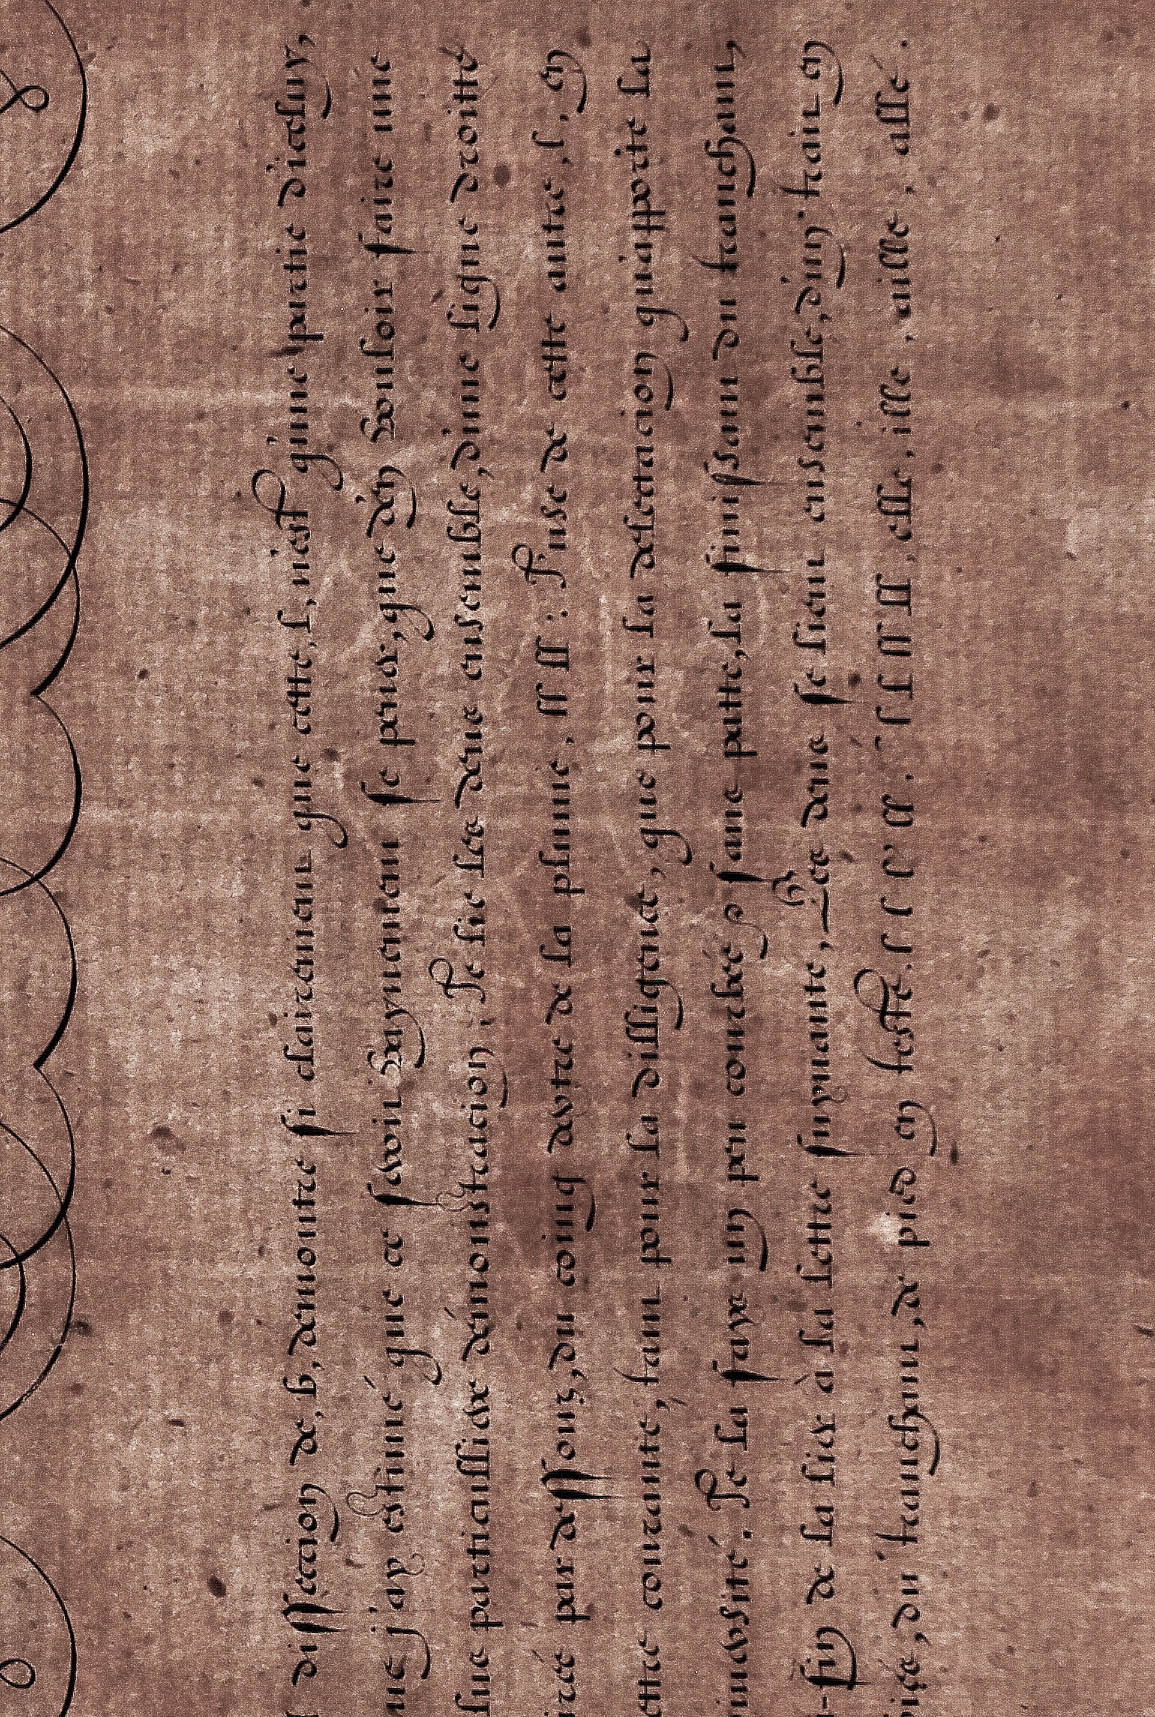 dissection de, b, demontre si clairement que cette, l, n'est qu'une partie d'iceluy,
j'ay estimé que ce seroit vaynement se peiner, que d'en vouloir faire une
particulliere démonstracion. Je lie les deux ensemble, d'une ligne droitte
par dessouz, du coing dextre de la plume, ll ll : J'use de cette autre, l, en
courante, tant pour la dilligence, que pour la delectacion qu'apporte la
Je la fayz un peu courbée & sans patte, la finissant du tranchant,
fin de la lier à la lettre suyvante, Les deux se lient ensemble, d'un trait en
du tranchant, de pied en teste. l l l' ll. l l ll ll ll, elle, ille, aille, alle.